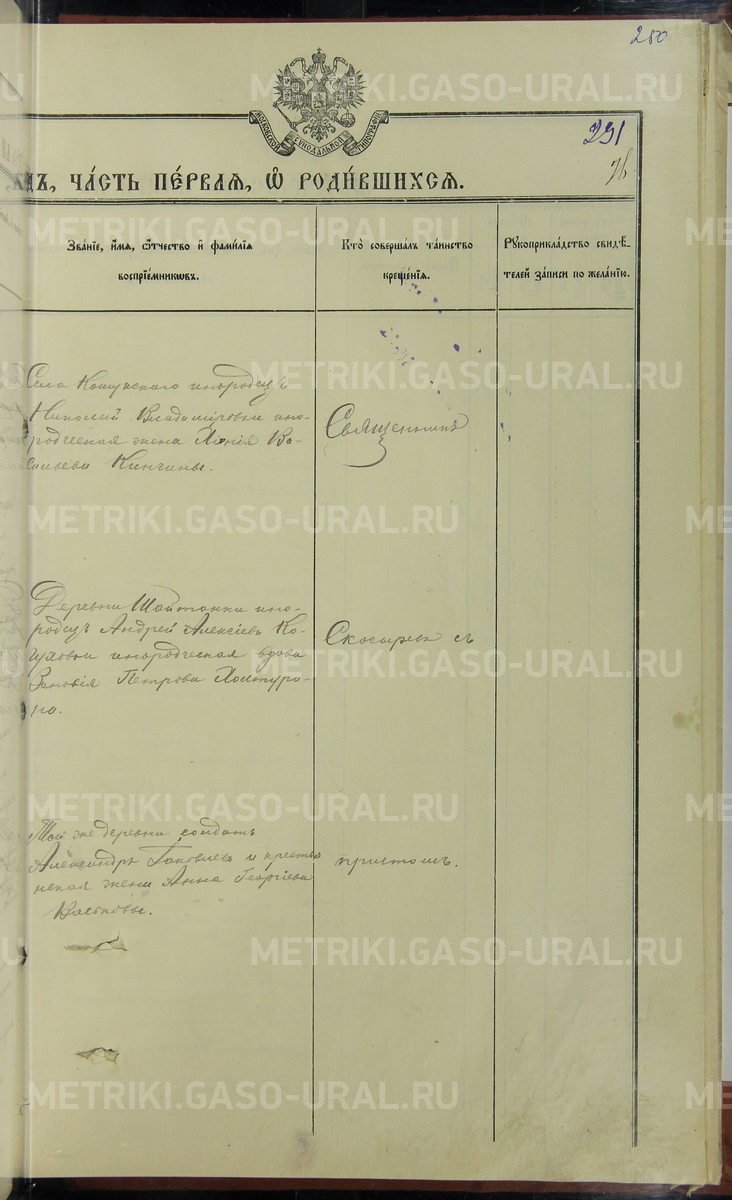 250
291
МОСКОВСКОЙ СѴНОДАЛЬНОЙ ТИПОГРАФІИ
ЧА́СТЬ ПЕ́РВАЯ, Ѡ҆ РОДИ́ВШИХСЯ.
Зва́нїе, и҆́мя, ѻ҆́тчество и҆ фами́лїя
воспрїе́мникѡвъ.
Кто̀ соверша́лъ та́инство
креще́нїя.
Рꙋкоприкла́дство свидѣ́-
телей за́писи по жела́нїю.
Села Кошукскаго инородецъ
Николай Владимировъ и ино-
родческая жена Ва-
сильева Кинчины.
Священникъ
Деревни Шайтанки ино-
родецъ Андрей Алексіевъ Ко-
и инородческая вдова
Зиновія Петрова
на.
Скосыревъ съ
Той же деревни солдатъ
Александръ Іаковлевъ и крестья
нская жена Анна Георгіева
причтомъ.
METRIKI.GASO-URAL.RU